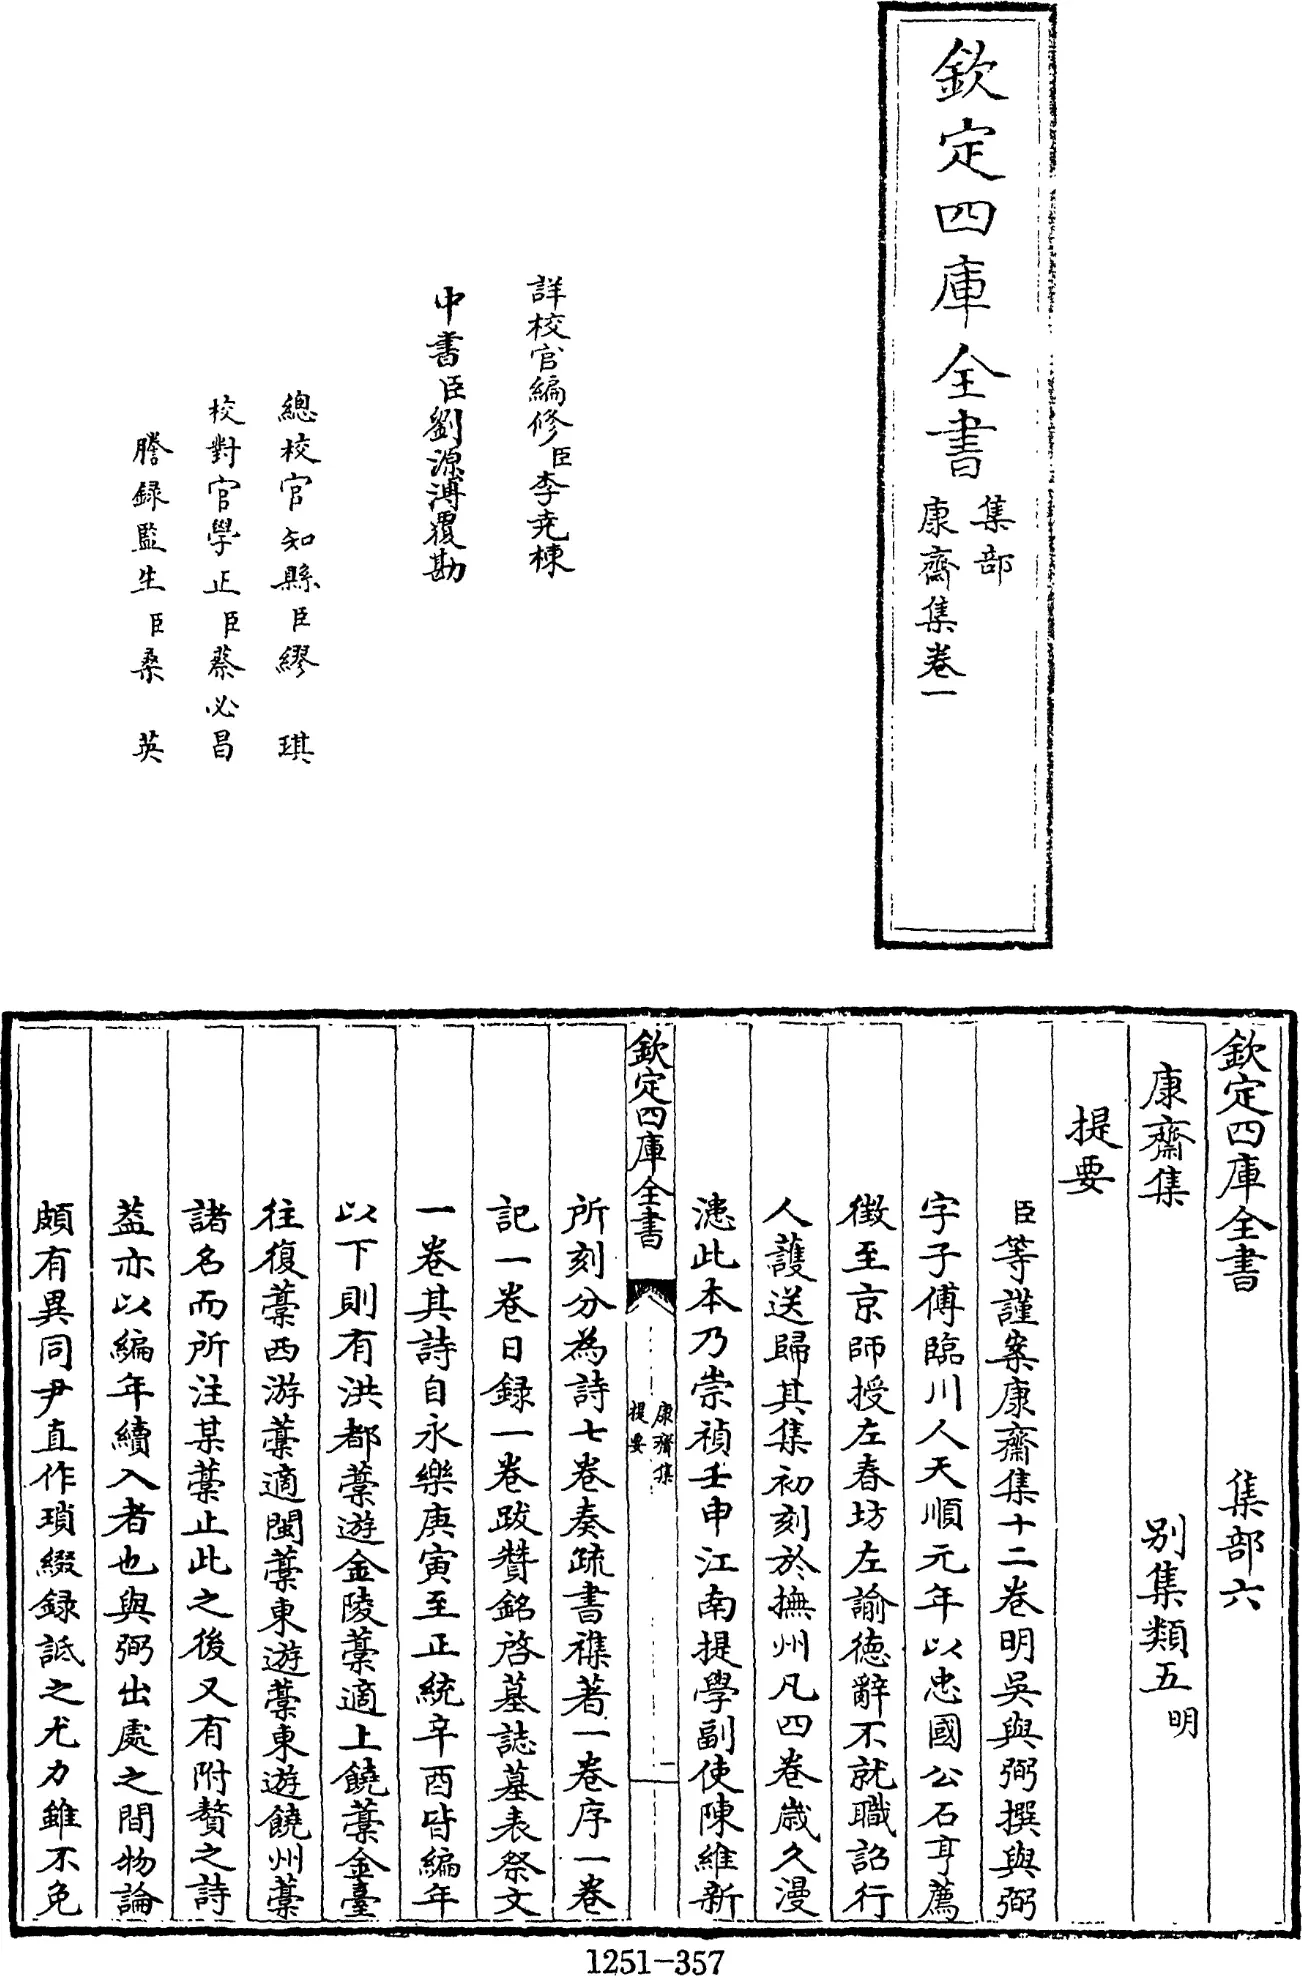 欽定四庫全書
集部
康齋集卷一
詳校官編修臣李堯棟
中書臣劉源溥覆勘
總校官知縣臣繆琪
校對官學正臣蔡必昌
謄錄監生臣桑英
欽定四庫全書 集部六
康齋集 別集類五明
提要
臣等謹案康齋集十二卷明吳與弼撰與弼
字子傅臨川人天順元年以忠國公石亨薦
徵至京師授左春坊左諭德辭不就職詔行
人護送歸其集初刻於撫州凡四卷歲久漫
漶此本乃崇禎壬申江南提學副使陳維新
欽定四庫全書
康齋集
提要
一
所刻分為詩七卷奏疏書襍著一卷序一卷
記一卷日録一卷跋贊銘啓墓誌墓表祭文
一卷其詩自永樂庚寅至正統辛酉皆編年
以下則有洪都藁遊金陵藁適上饒藁金臺
往復藁西游藁適閩藁東遊藁東遊饒州藁
諸名而所注某藁止此之後又有附贅之詩
葢亦以編年續入者也與弼出處之間物論
頗有異同尹直作瑣綴録詆之尤力雖不免
1251—357